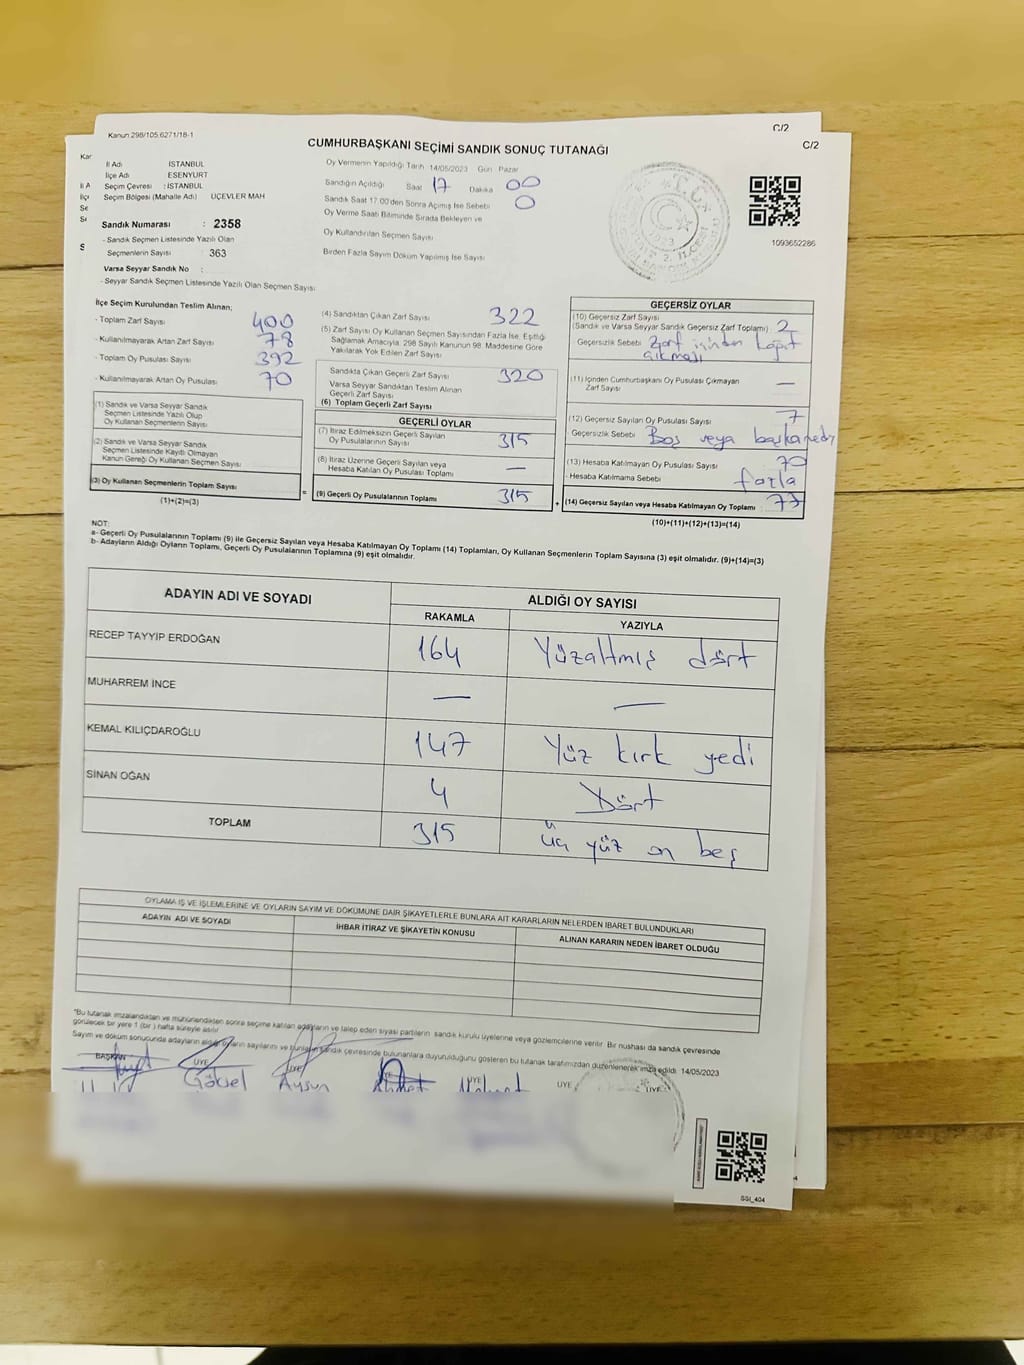 Kanun 298/105.6271/18-1
C/2
CUMHURBAŞKANI SEÇİMİ SANDIK SONUÇ TUTANAĞI
C/2
İl Adı İSTANBUL
İlçe Adı ESENYURT
Seçim Çevresi : İSTANBUL
Seçim Bölgesi (Mahalle Adı) ÜÇEVLER MAH
Sandık Numarası : 2358
- Sandık Seçmen Listesinde Yazılı Olan
Seçmenlerin Sayısı : 363
Varsa Seyyar Sandık No :
- Seyyar Sandık Seçmen Listesinde Yazılı Olan Seçmen Sayısı:
Oy Vermenin Yapıldığı Tarih 14/05/2023 Gün Pazar
Sandığın Açıldığı Saat 17 Dakika 00
Sandık Saat 17.00'den Sonra Açımış İse Sebebi 0
Oy Verme Saati Bitiminde Sırada Bekleyen ve
Oy Kullandırılan Seçmen Sayısı
Birden Fazla Sayım Döküm Yapılmış İse Sayısı
1093652286
İlçe Seçim Kurulundan Teslim Alınan;
- Toplam Zarf Sayısı 400
- Kullanılmayarak Artan Zarf Sayısı 78
- Toplam Oy Pusulası Sayısı 392
- Kullanılmayarak Artan Oy Pusulası 70
(1) Sandık ve Varsa Seyyar Sandık
Seçmen Listesinde Yazılı Olup
Oy Kullanan Seçmenlerin Sayısı
(2) Sandık ve Varsa Seyyar Sandık
Seçmen Listesinde Kayıtlı Olmayan
Kanun Gereği Oy Kullanan Seçmen Sayısı
(3) Oy Kullanan Seçmenlerin Toplam Sayısı
(1)+(2)=(3)
(4) Sandıktan Çıkan Zarf Sayısı 322
(5) Zarf Sayısı Oy Kullanan Seçmen Sayısından Fazla İse, Eşitliği
Sağlamak Amacıyla, 298 Sayılı Kanunun 98. Maddesine Göre
Yakılarak Yok Edilen Zarf Sayısı
Sandıkta Çıkan Geçerli Zarf Sayısı 320
Varsa Seyyar Sandıktan Teslim Alınan
Geçerli Zarf Sayısı
(6) Toplam Geçerli Zarf Sayısı
GEÇERLİ OYLAR
(7) İtiraz Edilmeksizin Geçerli Sayılan
Oy Pusulalarının Sayısı 315
(8) İtiraz Üzerine Geçerli Sayılan veya
Hesaba Katılan Oy Pusulası Toplamı —
= (9) Geçerli Oy Pusulalarının Toplamı 315
GEÇERSİZ OYLAR
(10) Geçersiz Zarf Sayısı
(Sandık ve Varsa Seyyar Sandık Geçersiz Zarf Toplamı) 2
Geçersizlik Sebebi Zarf içinden kağıt
çıkması
(11) İçinden Cumhurbaşkanı Oy Pusulası Çıkmayan
Zarf Sayısı —
(12) Geçersiz Sayılan Oy Pusulası Sayısı 7
Geçersizlik Sebebi Boş veya başka neden
(13) Hesaba Katılmayan Oy Pusulası Sayısı 70
- Hesaba Katılmama Sebebi fazla
+ (14) Geçersiz Sayılan veya Hesaba Katılmayan Oy Toplamı 77
(10)+(11)+(12)+(13)=(14)
NOT:
a- Geçerli Oy Pusulalarının Toplamı (9) ile Geçersiz Sayılan veya Hesaba Katılmayan Oy Toplamı (14) Toplamları, Oy Kullanan Seçmenlerin Toplam Sayısına (3) eşit olmalıdır. (9)+(14)=(3)
b- Adayların Aldığı Oyların Toplamı, Geçerli Oy Pusulalarının Toplamına (9) eşit olmalıdır.
ADAYIN ADI VE SOYADI
ALDIĞI OY SAYISI
RAKAMLA YAZIYLA
RECEP TAYYİP ERDOĞAN 164 Yüzaltmış dört
MUHARREM İNCE — —
KEMAL KILIÇDAROĞLU 147 Yüz kırk yedi
SİNAN OĞAN 4 Dört
TOPLAM 315 üç yüz on beş
OYLAMA İŞ VE İŞLEMLERİNE VE OYLARIN SAYIM VE DÖKÜMÜNE DAİR ŞİKAYETLERLE BUNLARA AİT KARARLARIN NELERDEN İBARET BULUNDUKLARI
ADAYIN ADI VE SOYADI İHBAR İTİRAZ VE ŞİKAYETİN KONUSU ALINAN KARARIN NEDEN İBARET OLDUĞU
*Bu tutanak imzalandıktan ve mühürlendikten sonra seçime katılan adayların ve talep eden siyasi partilerin sandık kurulu üyelerine veya gözlemcilerine verilir. Bir nüshası da sandık çevresinde
görülecek bir yere 1 (bir) hafta süreyle asılır.
Sayım ve döküm sonucunda adayların aldığı oyların sayılarını ve bunların sandık çevresinde bulunanlara duyurulduğunu gösteren bu tutanak tarafımızdan düzenlenerek imza edildi. 14/05/2023
BAŞKAN ÜYE ÜYE ÜYE ÜYE ÜYE
Göksel Aysun Ahmet Mehmet
SSI_404